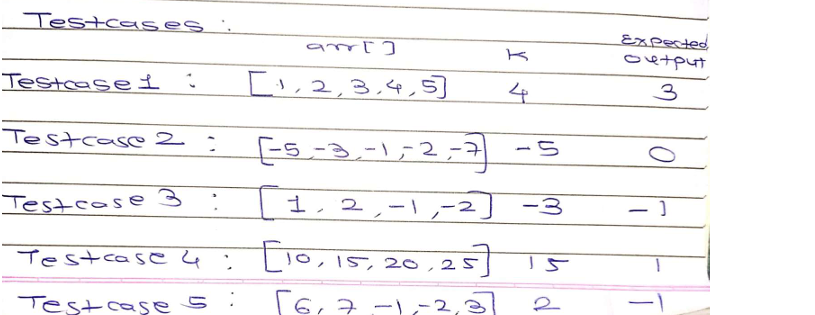 Testcases :
arr[] K Expected output
Testcase 1 : [1, 2, 3, 4, 5] 4 3
Testcase 2 : [-5, -3, -1, -2, -7] -5 0
Testcase 3 : [1, 2, -1, -2] -3 -1
Testcase 4 : [10, 15, 20, 25] 15 1
Testcase 5 : [6, 7, -1, -2, 3] 2 -1